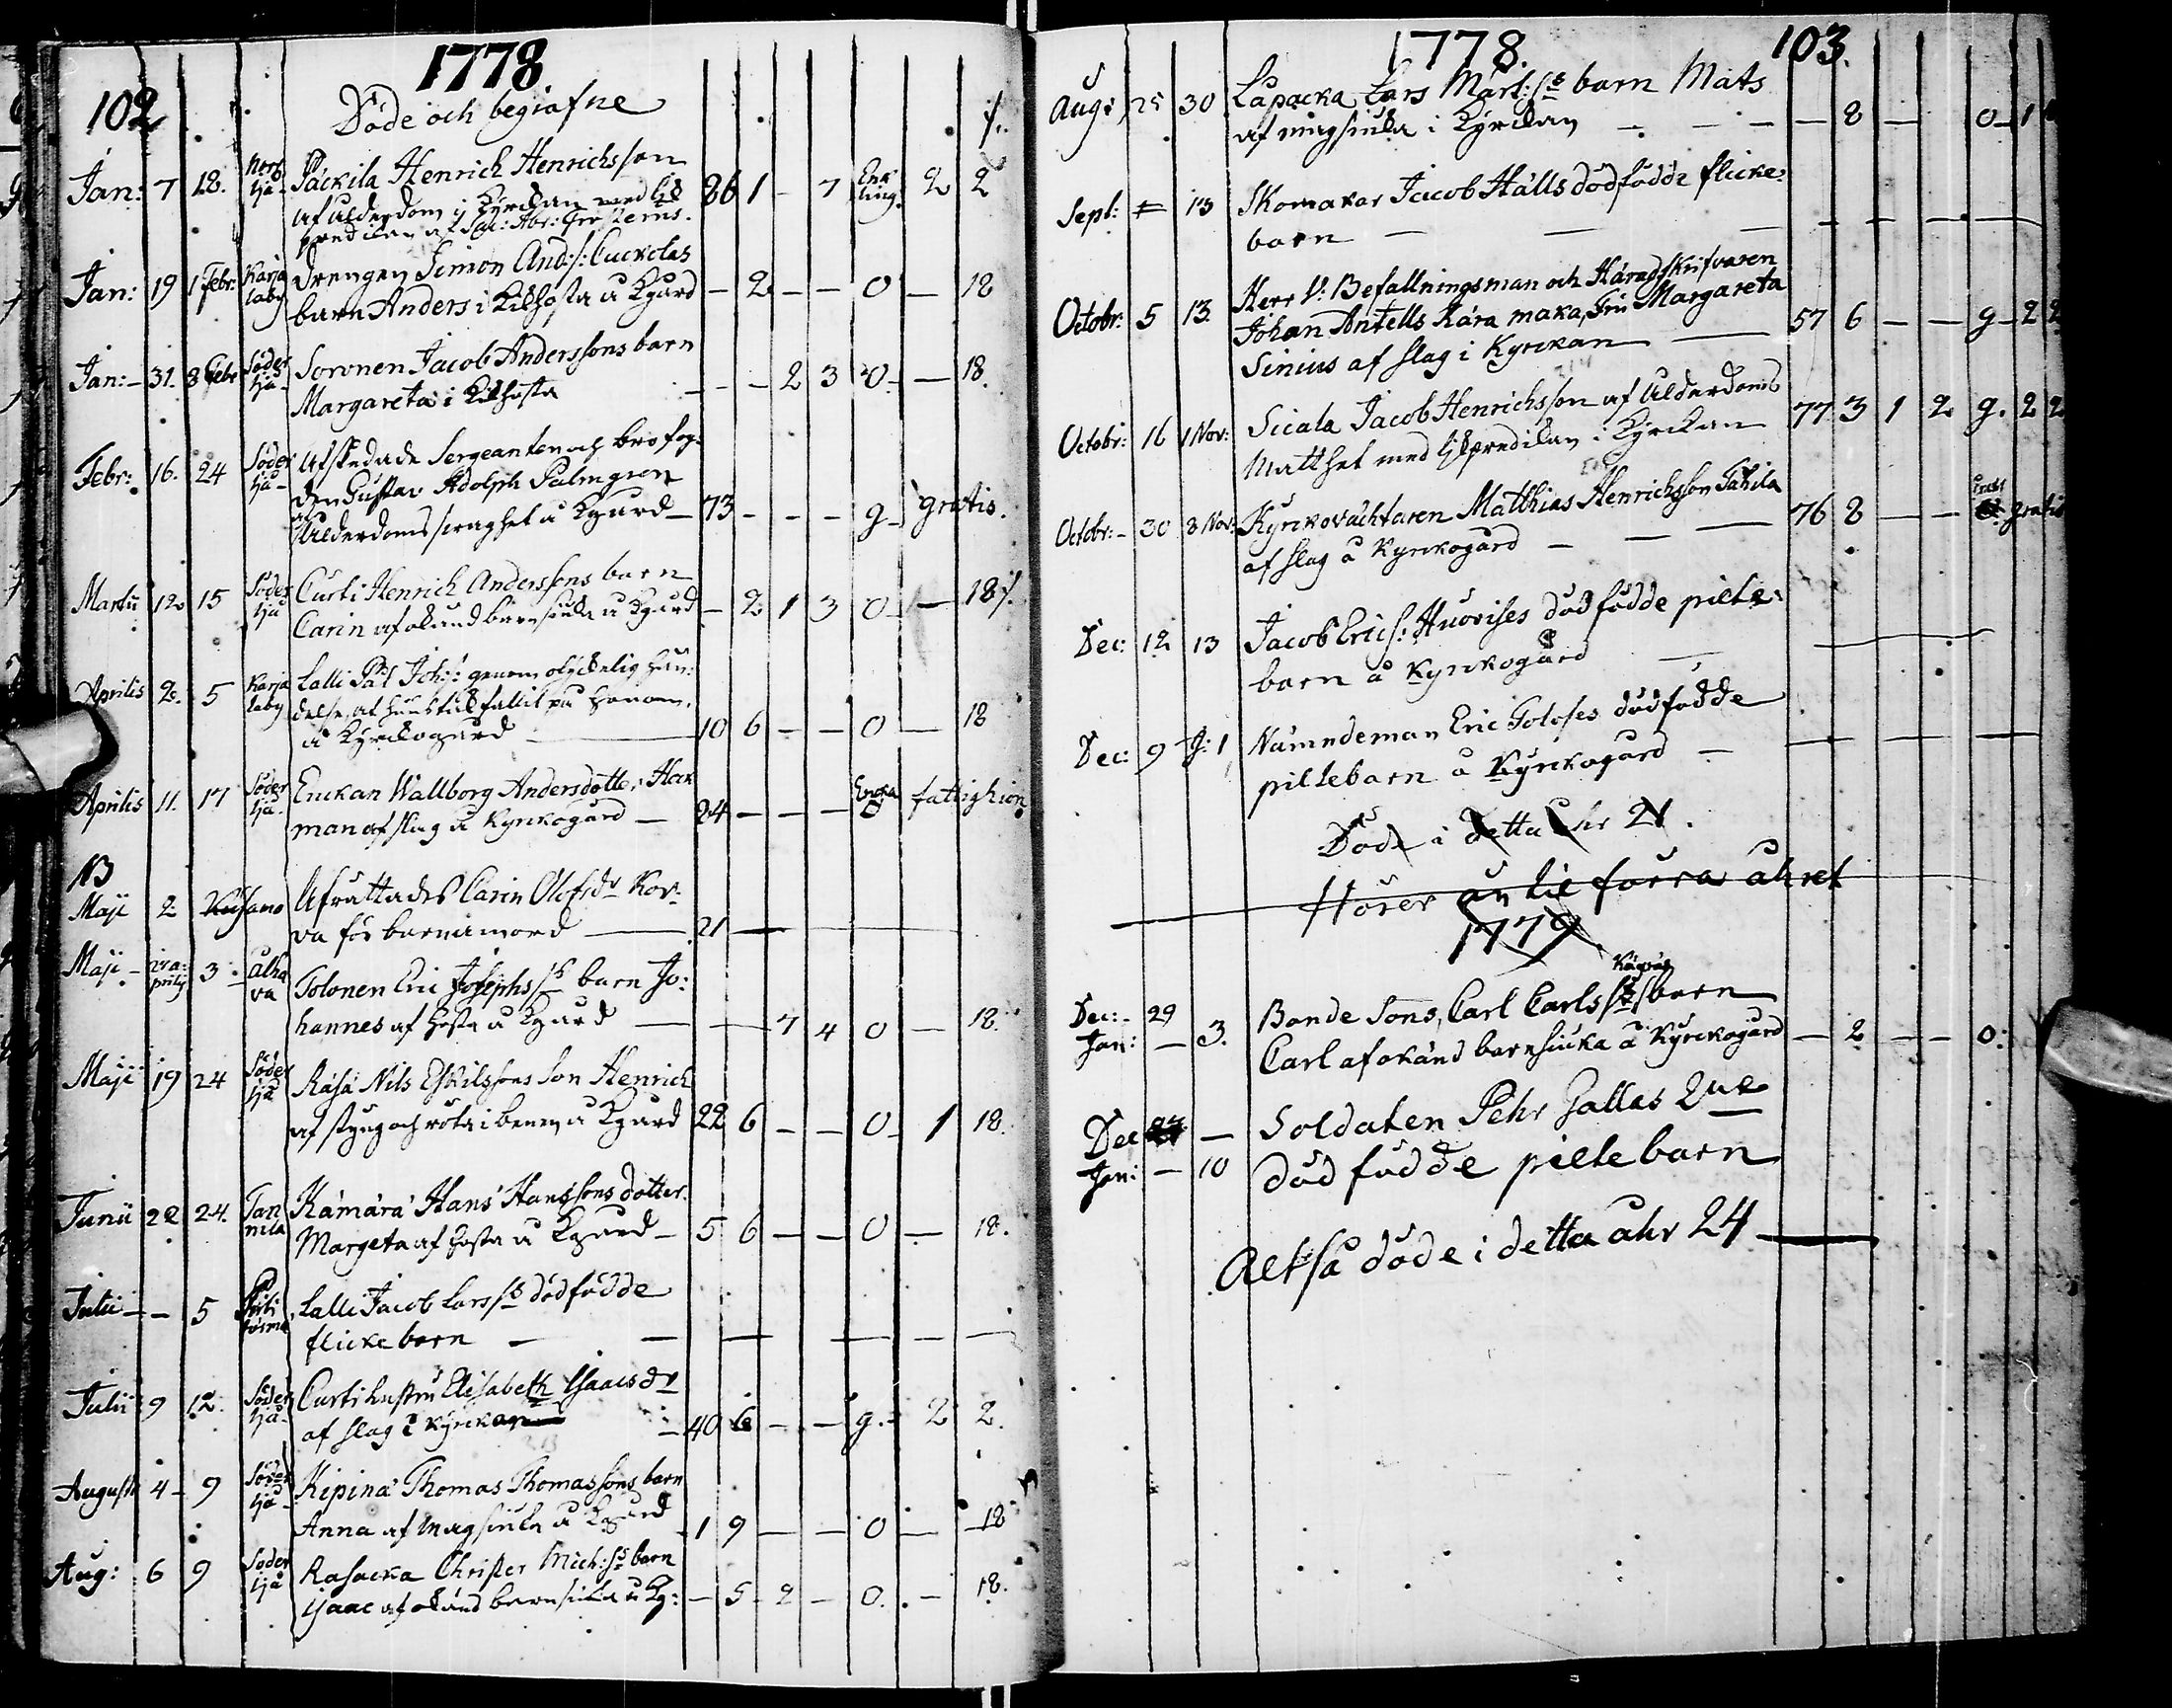 102
1778
Döde och begrafne
Jan: 7 18. Norr ljä - Päckilä Henrich Henrichsson
af ålderdom i Kyrckan med lik 86 1 - 7 Enk ling. 2 2
predikan af Sac: Abr:
Jan: 19 1 Febr: Karja laby Drengen Simon And:s: Cuckolas
barn Anders i Kikhosta å Kgård - 2 - - 0 - 18
Jan: - 31. 8 Febr Söder ljä - Soronen Jacob Anderssons barn
Margareta i Kikhosta - - - 2 3 0 - - 18.
Febr: 16. 24 Söder ljä - Afskedade Sergeanten och brofog-
den Gustav Adolph Palmgren
Ålderdoms svaghet å Kgård - 73 - - - g - gratis.
Martii 12 15 Söder ljä Curki Henrich Anderssons barn
Carin af okand barnsiuka å Kgård - 2 1 3 0 - 18 s.
Aprilis 2. 5 Karja laby Lalli Påt Joh:s: genom olyckelig hän-
delse, at
å Kyrckogård 10 6 - - 0 - 18
Aprilis 11. 17 Söder ljä. Enckan Wallborg Andersdotter Hack
man af slag å Kyrkogård - 24 - - - Encka 0 fattighion
NB
Maji 2 Afrättades Carin Olofsdr Kor-
va för barnamord 21 -
Maji - 27 a- prilis 3 - alha va Tolonen Eric Josephss barn Jo-
hannes af hosta å Kgård - - 7 4 0 - 18.
Maji 19 24 Söder ljä Räsä Nils Eskilssons son Henrich
af styng och röta i benen å Kgård 22 6 - - 0 - 1 18.
Junii 22 24. Tan nila Kämärä Hans Hanssons dotter
Margeta af hosta å Kgård - 5 6 - - 0 - 18.
Julii - - 5 Lalli Jacob Larss dödfödde
flicke barn - -
Julii 9 12. Söder ljä - Curki hustru Elisabeth Isaacsdr
af slag i Kyrckan - 40 6 - - g. - 2 2.
Augusti 4 - 9 Söder ljä - Kipinä Thomas Thomassons barn
Anna af magsiuka å Kgård - 1 9 - - 0 - - 18
Aug: 6 9 Söder ljä Rasacka Christer Mich:ss barn
Isaac af okänd barnsiuka å Kg: - 5 2 - 0. - 18.
1778.
103.
Aug: 25 30 Lapacka Lars Mårt:ss barn Mats
af magsiuka i Kyrckan - - - - 8 - 0 - 1
Sept: 13 Skomakar Jacob Hälls dödfödde flicke-
barn - - -
Octobr: 5 13. Herr V: Befallningsman och Häradsskrifvaren
Johan Antells Kära maka, Fru Margareta
Sinius af slag i Kyrckan 57 6 - - g - 2 2
Octobr: 16 1 Nov: Sicala Jacob Henrichsson af ålderdoms
Matthet med likpredikan i Kyrckan 77 3 1 2 g. 2 2
Octobr: - 30 8 Nov: Kyrkovächtaren Matthias Henrichsson Tähilä
af slag å Kyrkogård - - 76 8 - - gratis
Dec: 12 13 Jacob Erics: Huovises dödfödde pilte-
barn å Kyrkogård -
Dec: 9 J: 1 Nämndeman Eric Toloses dödfödde
piltebarn å Kyrckogård -
Döde i detta åhr 21.
Hörer än til förra åhret
1779
Dec: - 29
Jan: - 3. Bonde Sons, Carl Carlss barn
Carl af okänd barnsiuka å Kyrckogård - 2 - - 0:
Dec - Soldaten Pehr Gallas 2ne
Jan: - 10 död födde pilte barn
Altså döde i detta åhr 24